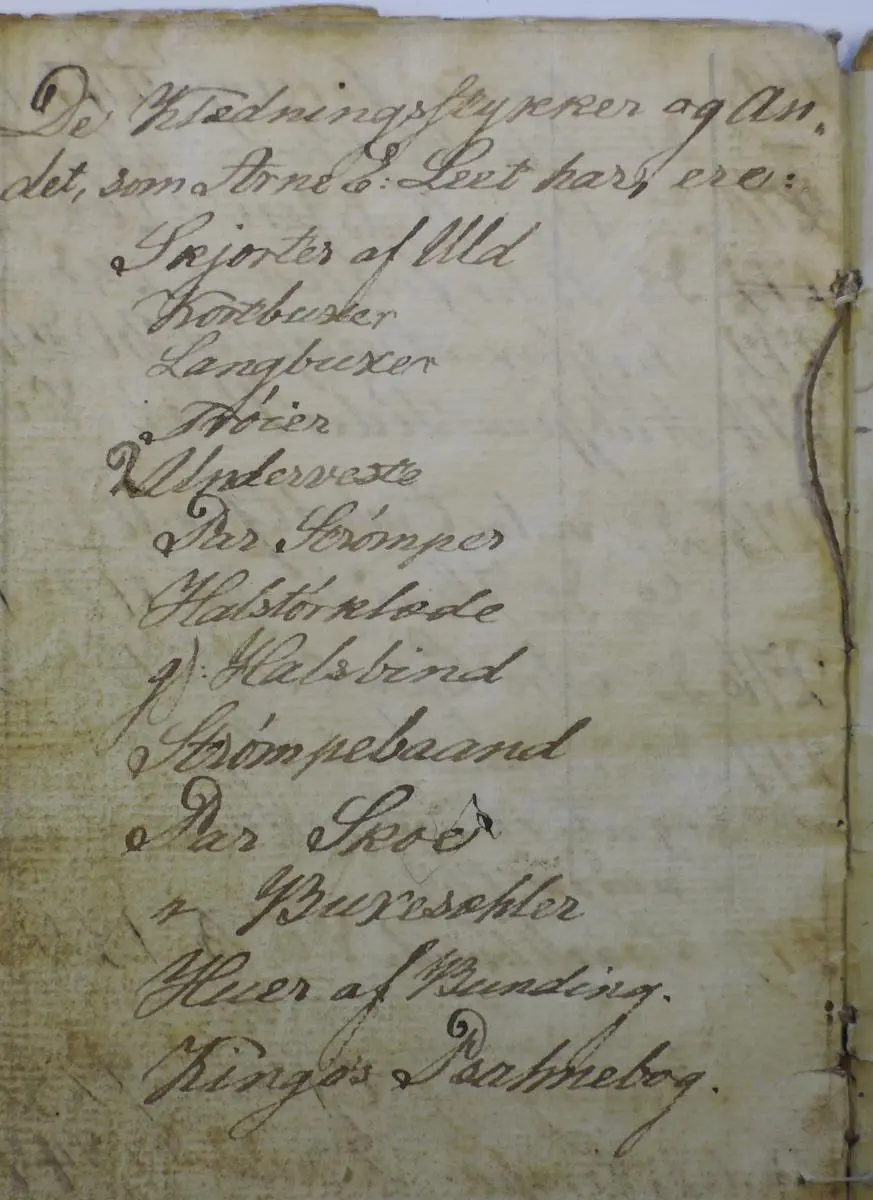 De Klædningsstykker og An-
det, som Arne E: Leet har, ere:
Skjorter af Uld
Kortbuxer
Langbuxer
Trøier
2 Underveste
Par Strømper
Halstørklæde
g): Halsbind
Strømpebaand
Par Skoe
" Buxesæhler
Huer af Bunding.
Kingos Psalmebog.